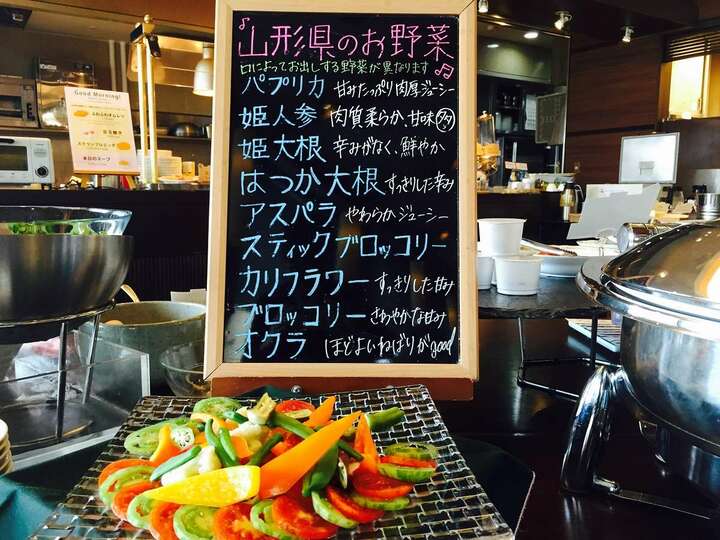 ♪山形県のお野菜♫
日によってお出しする野菜が異なります
パプリカ 甘みたっぷり肉厚ジューシー
姫人参 肉質柔らか、甘味タップリ
姫大根 辛みがなく、鮮やか
はつか大根 すっきりした辛み
アスパラ やわらかジューシー
スティックブロッコリー
カリフラワー すっきりした甘み
ブロッコリー さわやかな甘み
オクラ ほどよいねばりがgood
Good Morning!
本日のスープ